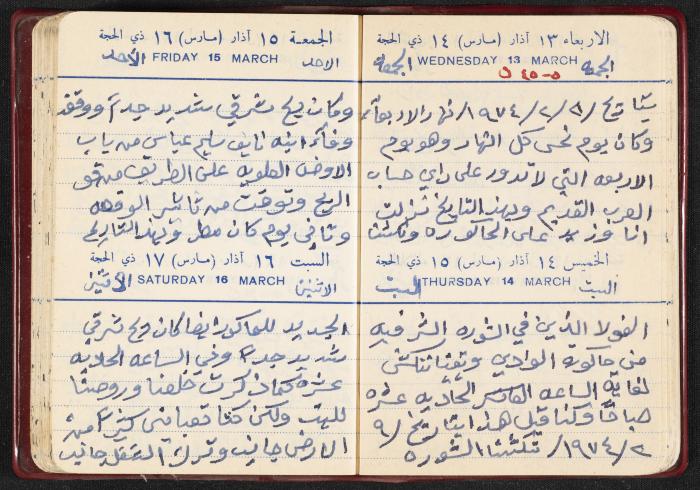 الاربعاء ١٣ آذار (مارس) ١٤ ذي الحجة
الجمعه WEDNESDAY 13 MARCH الجمعه
بتاريخ ١٩٧٤/٢/٨/ نهار الاربعاء
وكان يوم نحس كل النهار وهو يوم
الاربعه التي لا تدور على راي حساب
العرب القديم وبهذ التاريخ نزلت
انا على الحاكوره ونكشنا
الخميس ١٤ آذار (مارس) ١٥ ذي الحجة
السبت THURSDAY 14 MARCH السبت
الفولا الذي في الشوره الشرقيه
من حاكورة الوادي وبقينا ننكش
لغاية الساعه الحاديه عشره
صباحاً وكنا قبل هذا بتاريخ /٩
١٩٧٤/٢/ نكشنا الشوره
الجمعة ١٥ آذار (مارس) ١٦ ذي الحجة
الاحد FRIDAY 15 MARCH الأحد
وكان ريح شرقي شديد جداً ووقفة
وفاء ابنه نايف سليم عباس من باب
الاوض العلويه على الطريق من قو
الريح وتوفت من تاثير الوقعه
وثاني يوم كان مطر وبهذ التاريخ
السبت ١٦ آذار (مارس) ١٧ ذي الحجة
الاثنين SATURDAY 16 MARCH الأثنين
الجديد للحاكوره ايضا كان ريح شرقي
شديد جداً وفي الساعه الحاديه
عشره خلصنا وروحنا
للبيت ولكن كنا تعبانين كثيراً من
الارض جانب وترك الشغل جانب